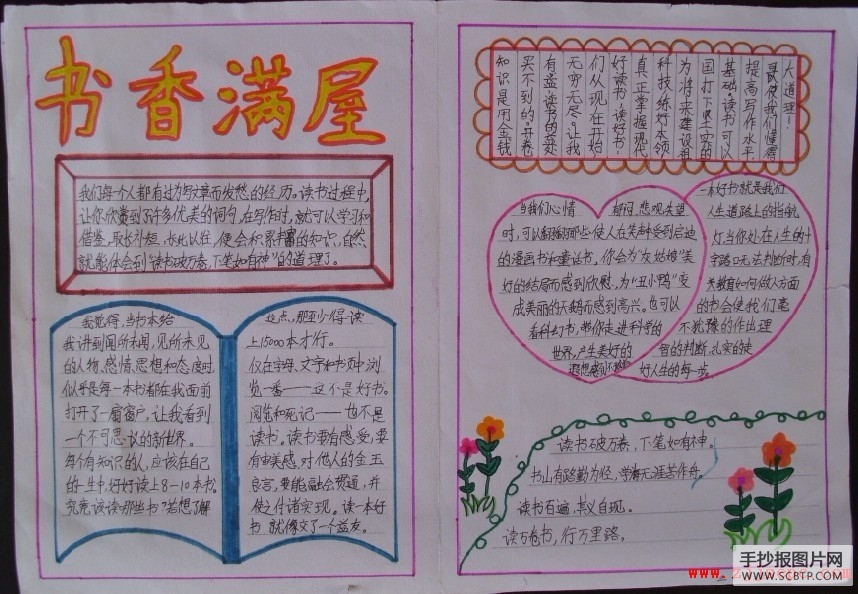 书香满屋
我们每个人都有过为写文章而发愁的经历。读书过程中,
让你欣赏到了许多优美的词句,在写作时,就可以学习和
借鉴,取长补短,长此以往,便会积累丰富的知识,自然
就能体会到“读书破万卷,下笔如有神”的道理了。
我觉得,当书本给
我讲到闻所未闻,见所未见
的人物、感情、思想和态度时,
似乎是每一本书都在我面前
打开了一扇窗户,让我看到
一个不可思议的新世界。
每个有知识的人,应该在自己
的一生中,好好读上8—10本书。
究竟该读哪些书?若想了解
这点,那至少得读
上15000本才行。
仅在字母、文字和书页中浏
览一番——这不是好书。
阅览和死记——也不是
读书。读书要有感受,要
有审美感,对他人的金玉
良言,要能融会贯通,并
使之付诸实现。读一本好
书,就像交了一个益友。
大道理!
哥使我们懂得
提高写作水平
基础。读书可以
国打下坚实的
为将来建设祖
科技,练好本领
真正掌握现代
好读书,读好书!
们从现在开始
无穷无尽。让我
有益,读书的益处
买不到的。开卷
知识是用金钱
当我们心情 郁闷、悲观、失望
时,可以翻翻那些使人在笑声中受到启迪
的漫画书和童话书。你会为“灰姑娘”美
好的结局而感到欣慰,为“丑小鸭”变
成美丽的天鹅而感到高兴。也可以
看科幻书,带你走进科学的
世界,产生美好的
遐想感到不
一本好书就是我们
人生道路上的指航
灯,当你处在人生的十
字路口无法判断时,有
关教育如何做人方面
的书会使我们毫
不犹豫的作出理
智的判断,扎实的走
好人生的每一步。
读书破万卷,下笔如有神。
书山有路勤为径,学海无涯苦作舟。
读书百遍,其义自现。
读万卷书,行万里路。
手抄报图片网
WWW.SCBTP.COM